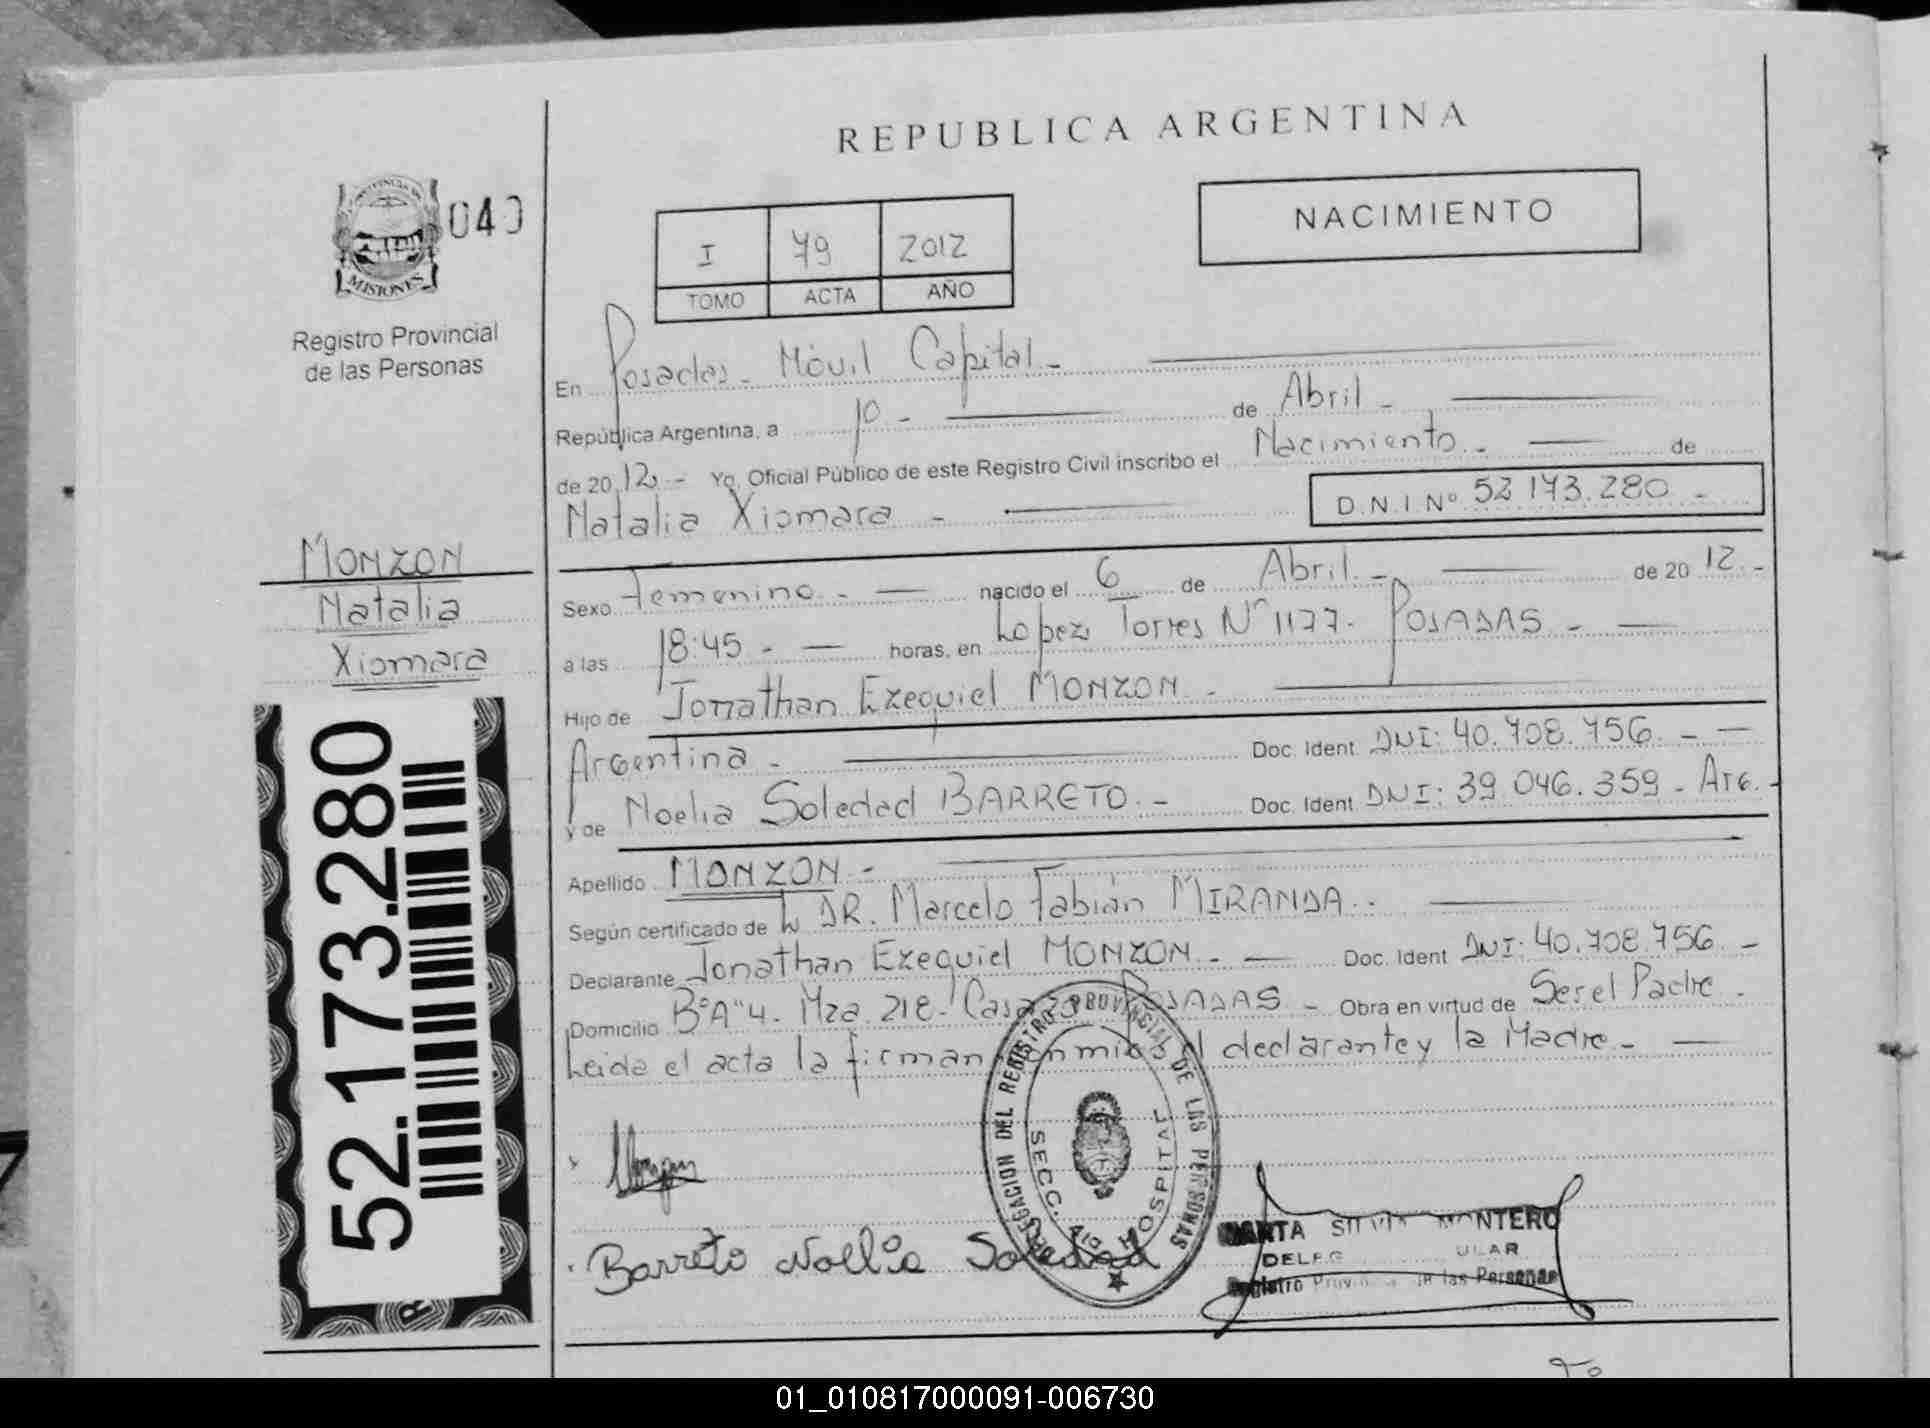 REPUBLICA ARGENTINA
PROVINCIA DE
MISIONES
040
Registro Provincial
de las Personas
I 79 2012
TOMO ACTA AÑO
NACIMIENTO
En Posadas - Móvil Capital -
República Argentina, a 10 - de Abril -
de 2012 - Yo, Oficial Público de este Registro Civil inscribo el Nacimiento - de
Natalia Xiomara - D.N.I Nº 52 173.280 -
MONZON
Natalia
Xiomara
52.173.280
Sexo Femenino - nacido el 6 de Abril - de 20 12 -
a las 18:45 - horas, en Lopez Torres Nº 1177 - POSADAS -
Hijo de Jonathan Ezequiel MONZON -
Argentina - Doc. Ident. DNI: 40.708.756 -
y de Noelia Soledad BARRETO - Doc. Ident. DNI: 39.046.359 - Arg. -
Apellido MONZON -
Según certificado de DR. Marcelo Fabián MIRANDA -
Declarante Jonathan Ezequiel MONZON - Doc. Ident DNI: 40.708.756 -
Domicilio Bº"A"4 - Mza. 218 - Casa POSADAS - Obra en virtud de Ser el Padre -
Leida el acta la firman conmigo el declarante y la Madre -
DELEGACION DEL REGISTRO PROVINCIAL DE LAS PERSONAS
SECC. HOSPITAL
Barreto Noelia Soledad
MARTA SILVIA MONTERO
Registro Provincial de las Personas
01_010817000091-006730